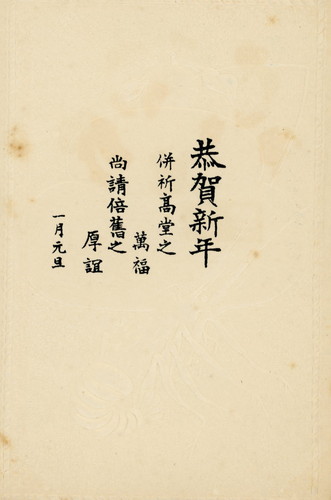 恭賀新年
併祈高堂之
萬福
尚請倍舊之
厚誼
一月元旦